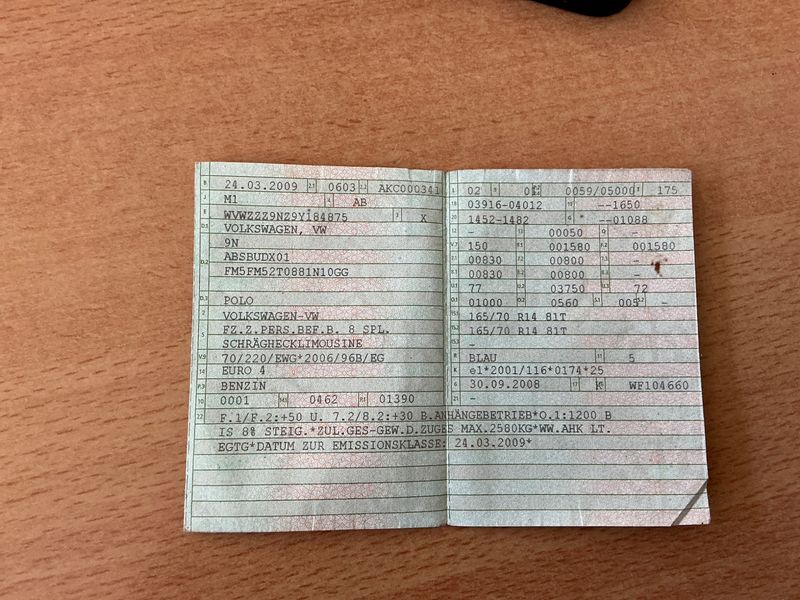 B 24.03.2009 2.1 0603 2.2 AKC000341
J M1 4 AB
E WVWZZZ9NZ9Y184875 3 X
D.1 VOLKSWAGEN, VW
9N
D.2 ABSBUDX01
FM5FM52T0881N10GG
D.3 POLO
2 VOLKSWAGEN-VW
5 FZ.Z.PERS.BEF.B. 8 SPL.
SCHRÄGHECKLIMOUSINE
V.9 70/220/EWG*2006/96B/EG
14 EURO 4
P.3 BENZIN
10 0001 14.1 0462 P.1 01390
L 02 9 01 P.2 P.4 0059/05000 T 175
18 03916-04012 19 --1650
20 1452-1482 G * --01088
12 - 13 00050 Q -
V.7 150 F.1 001580 F.2 001580
7.1 00830 7.2 00800 7.3 -
8.1 00830 8.2 00800 8.3 -
U.1 77 U.2 03750 U.3 72
O.1 01000 O.2 0560 S.1 005 S.2 -
15.1 165/70 R14 81T
15.2 165/70 R14 81T
15.3 -
R BLAU 11 5
K e1*2001/116*0174*25
6 30.09.2008 17 K 16 WF104660
21 -
22 F.1/F.2:+50 U. 7.2/8.2:+30 B.ANHÄNGEBETRIEB*O.1:1200 B
IS 8% STEIG.*ZUL.GES-GEW.D.ZUGES MAX.2580KG*WW.AHK LT.
EGTG*DATUM ZUR EMISSIONSKLASSE: 24.03.2009*